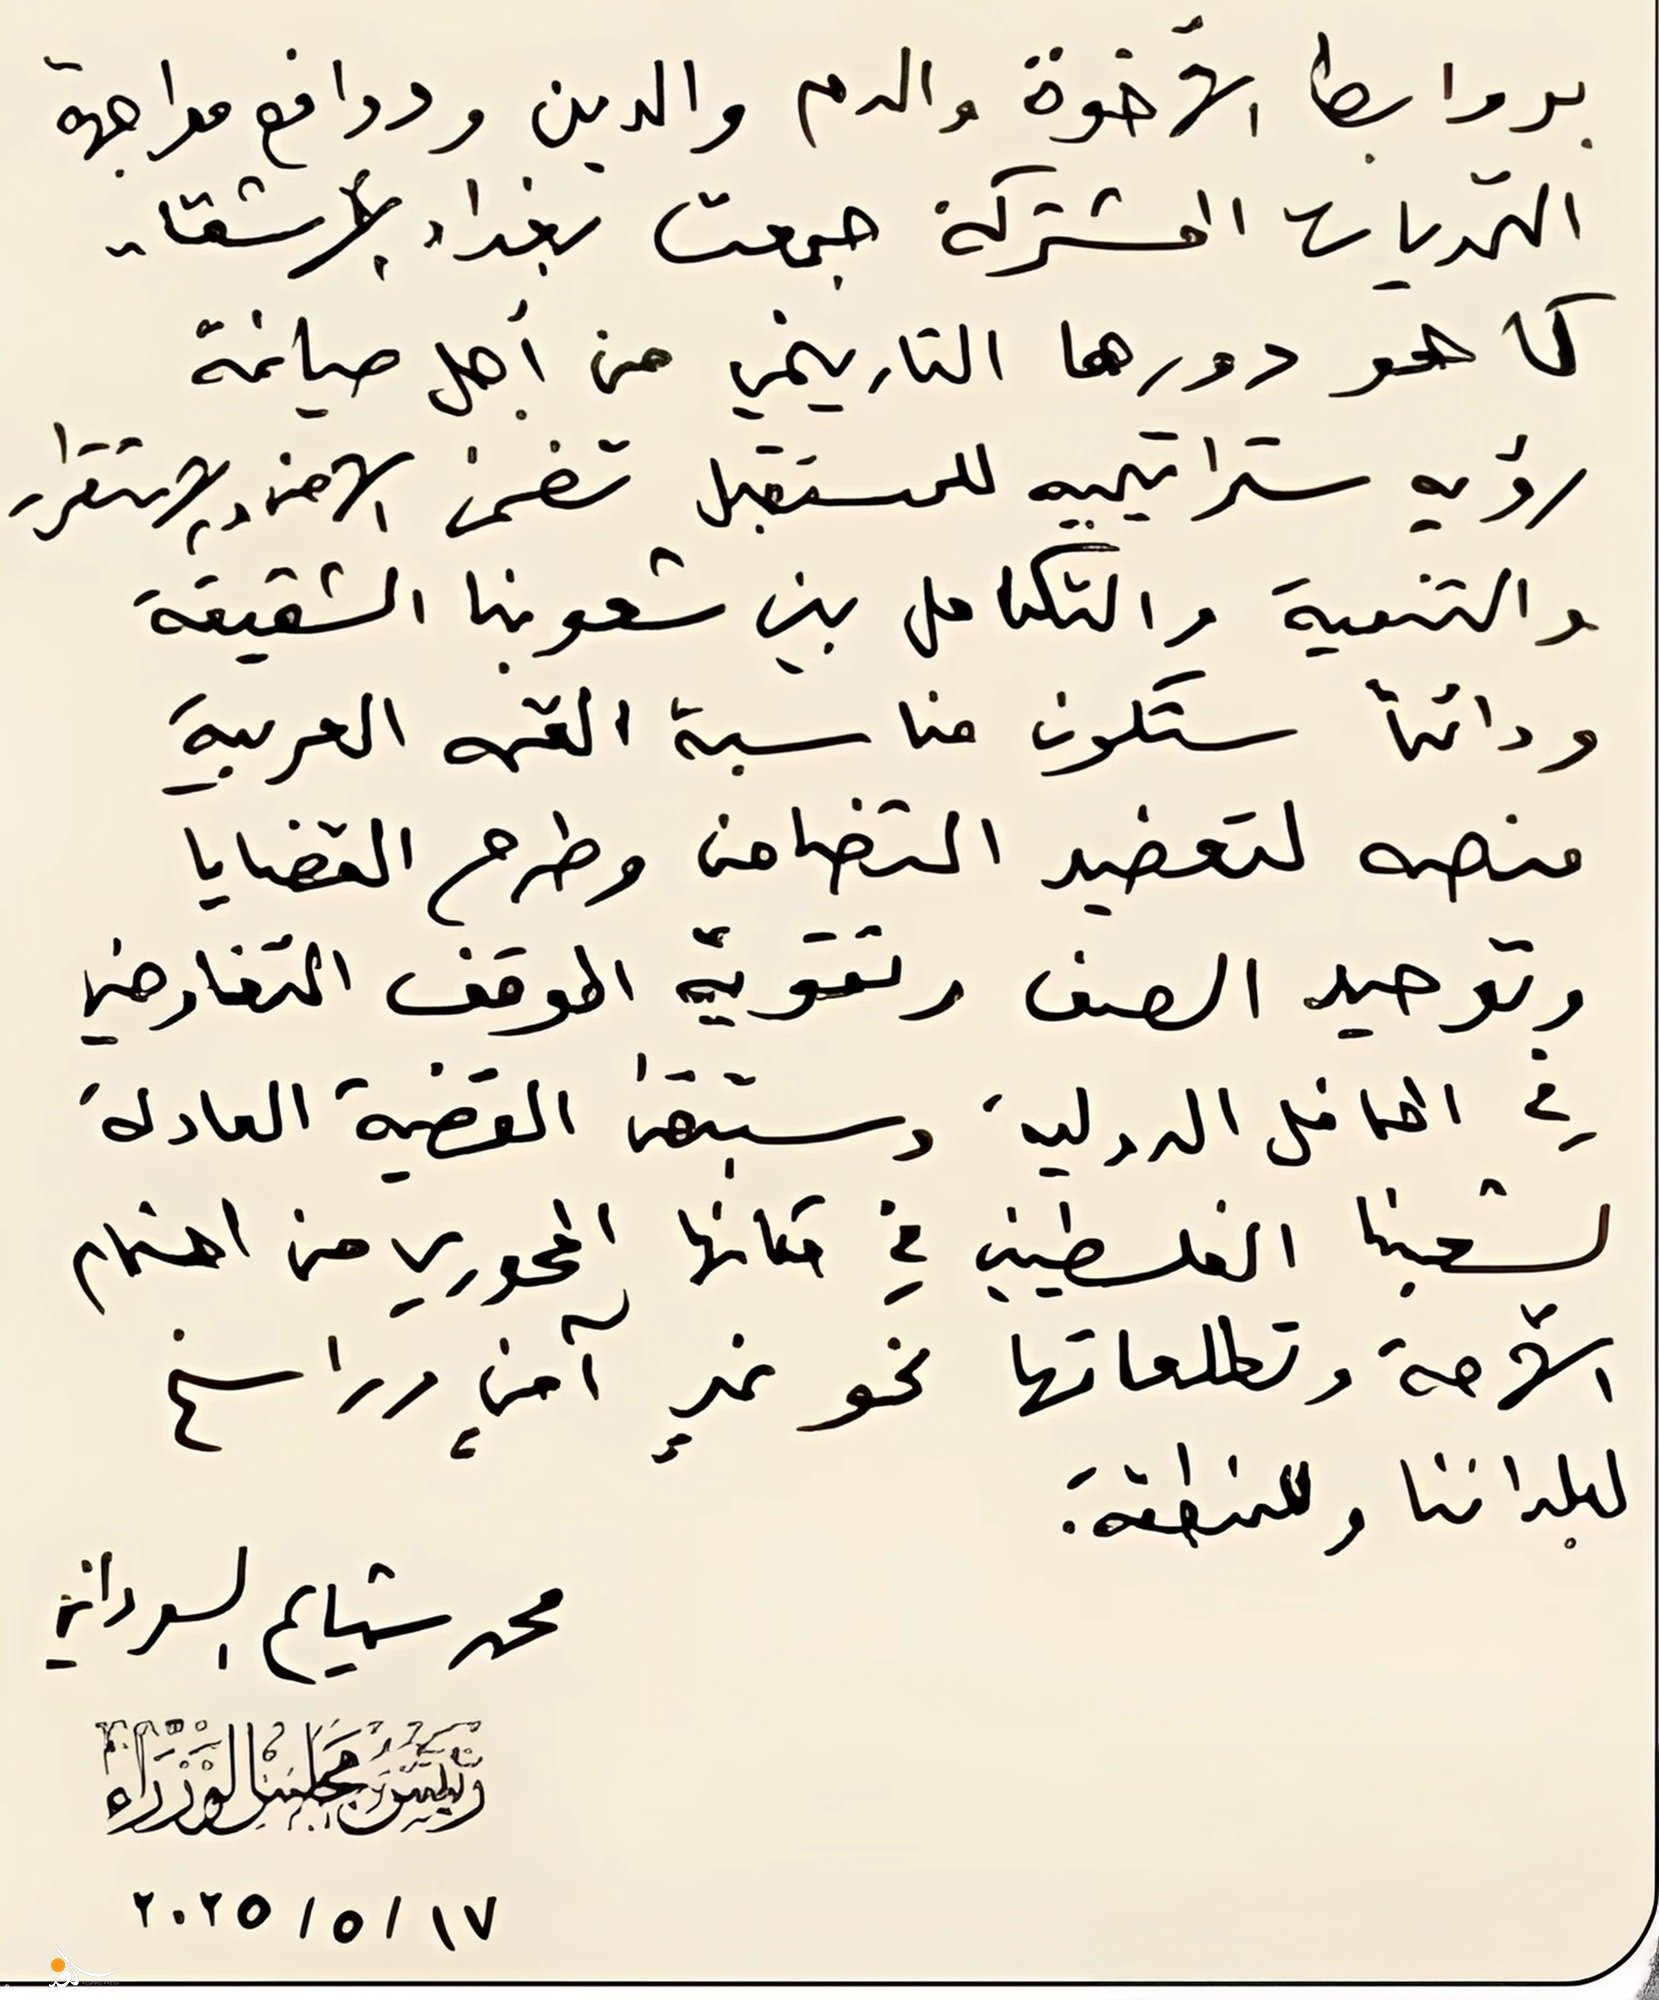 بروابط الأخوة والدم والدين ودوافع مواجهة
التحديات المشتركة جمعت بغداد الأشقاء
كما هو دورها التاريخي من أجل صياغة
رؤيه ستراتيجيه للمستقبل تضمن الامن والاستقرار
والتنمية والتكامل بين شعوبنا الشقيقة
ودائماً ستكون مناسبة القمه العربية
منصه لتعضيد التضامن وطرح القضايا
وتوحيد الصف وتقويّة الموقف التفاوضي
في المحافل الدولية وستبقى القضية العادلة
لشعبنا الفلسطيني في مكانها المحوري من اهتمام
الأمة وتطلعاتها نحو غدٍ آمنٍ وراسخ
لبلداننا وللمنطقة.
محمد شياع السوداني
رئيس مجلس الوزراء
٢٠٢٥/٥/١٧